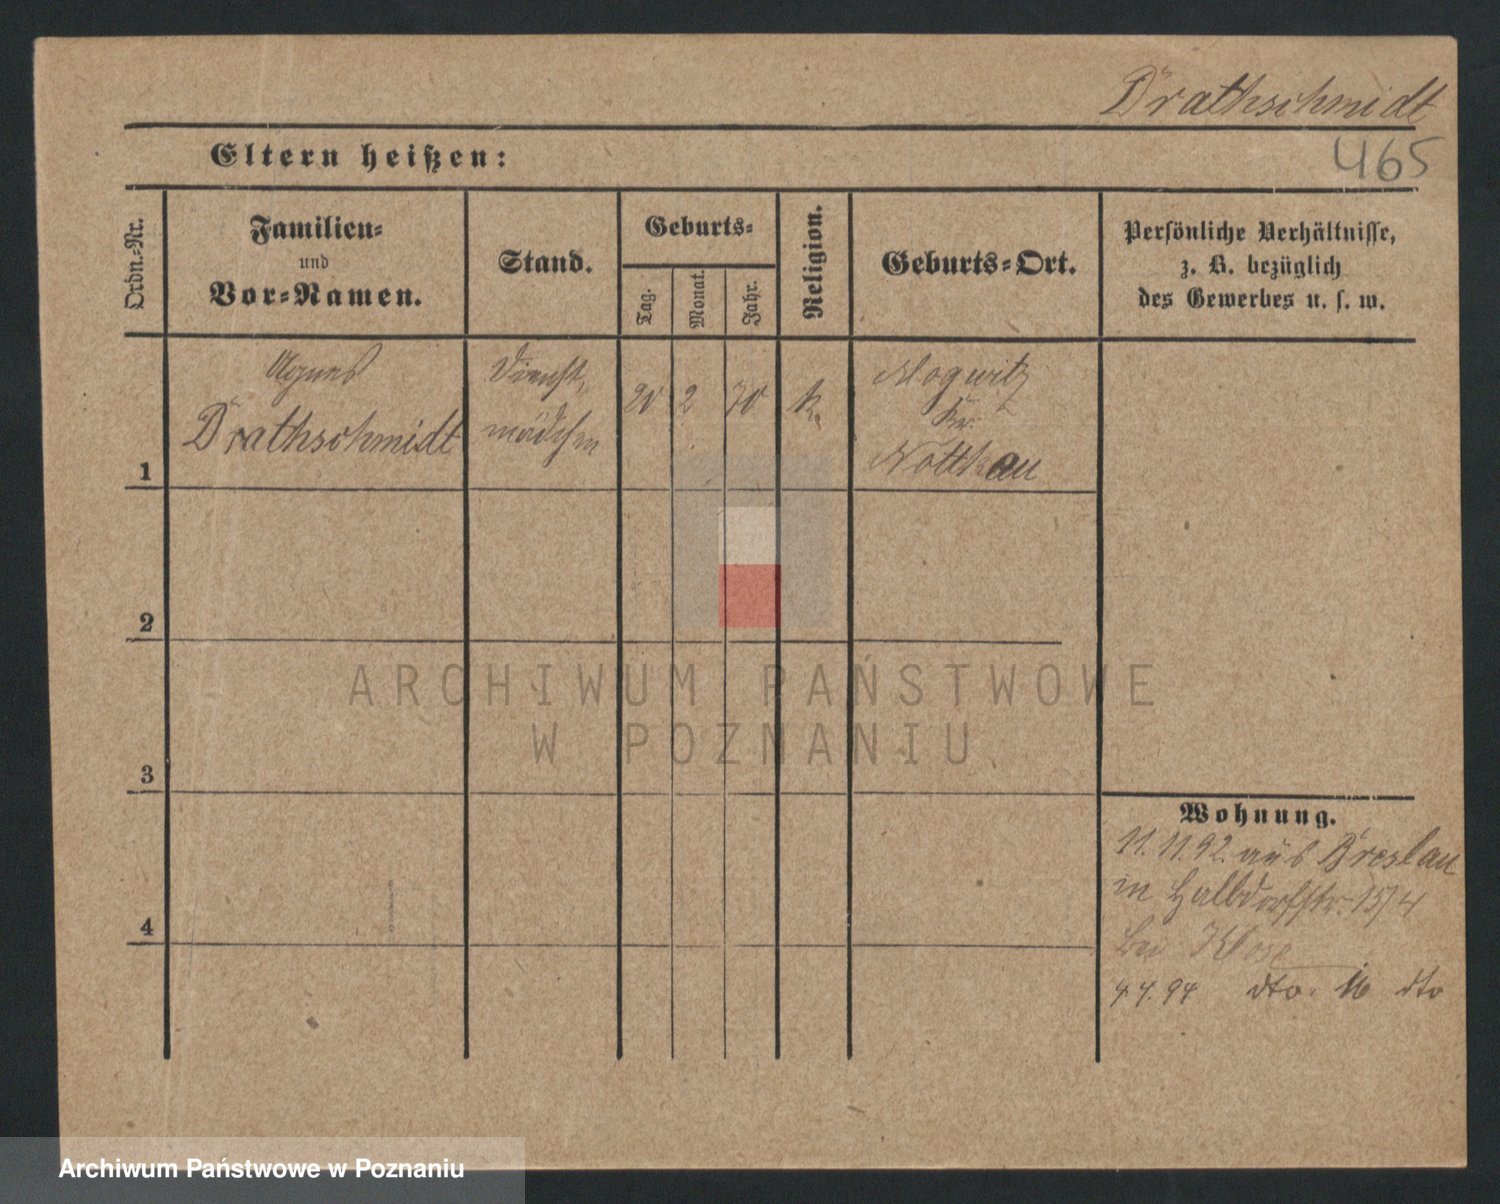 Drathschmidt
465
Eltern heißen:
Ordn.-Nr.
Familien-
und
Vor-Namen.
Stand.
Geburts-
Tag.
Monat.
Jahr.
Religion.
Geburts-Ort.
Persönliche Verhältnisse,
z. B. bezüglich
des Gewerbes u. s. w.
1
Agnes
Drathschmidt
Dienst,
mädchen
20
2
70
k.
Mogwitz
Kr.
2
3
4
Wohnung.
11.11.92. aus Breslau
in Halbdorfstr. 15/4
bei Klose
4.4.94 dto. 16 dto
ARCHIWUM PAŃSTWOWE
W POZNANIU
Archiwum Państwowe w Poznaniu